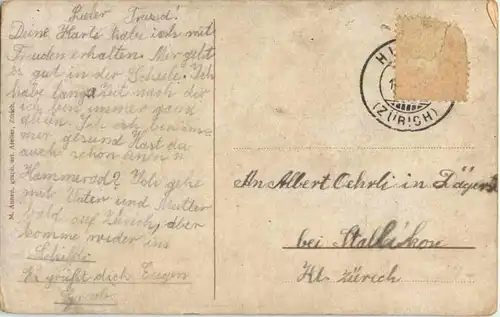 Lieber Freund!
Deine Karte habe ich mit
Freuden erhalten. Mir geht
es gut in der Schule. Ich
habe lang Zeit nach der
ich bin immer ganz
allein. Ich bin im
mer gesund Hast du
auch schon einen
Kammerad? Ich gehe
mit Vater und Mutter
bald auf Zürich, aber
komme wieder ins
Es grüßt dich Eugen
M. Anner, Graph. art. Atelier, Zürich.
HI
(ZÜRICH)
An Albert Oehrli in Däger
bei
Kt. Zürich